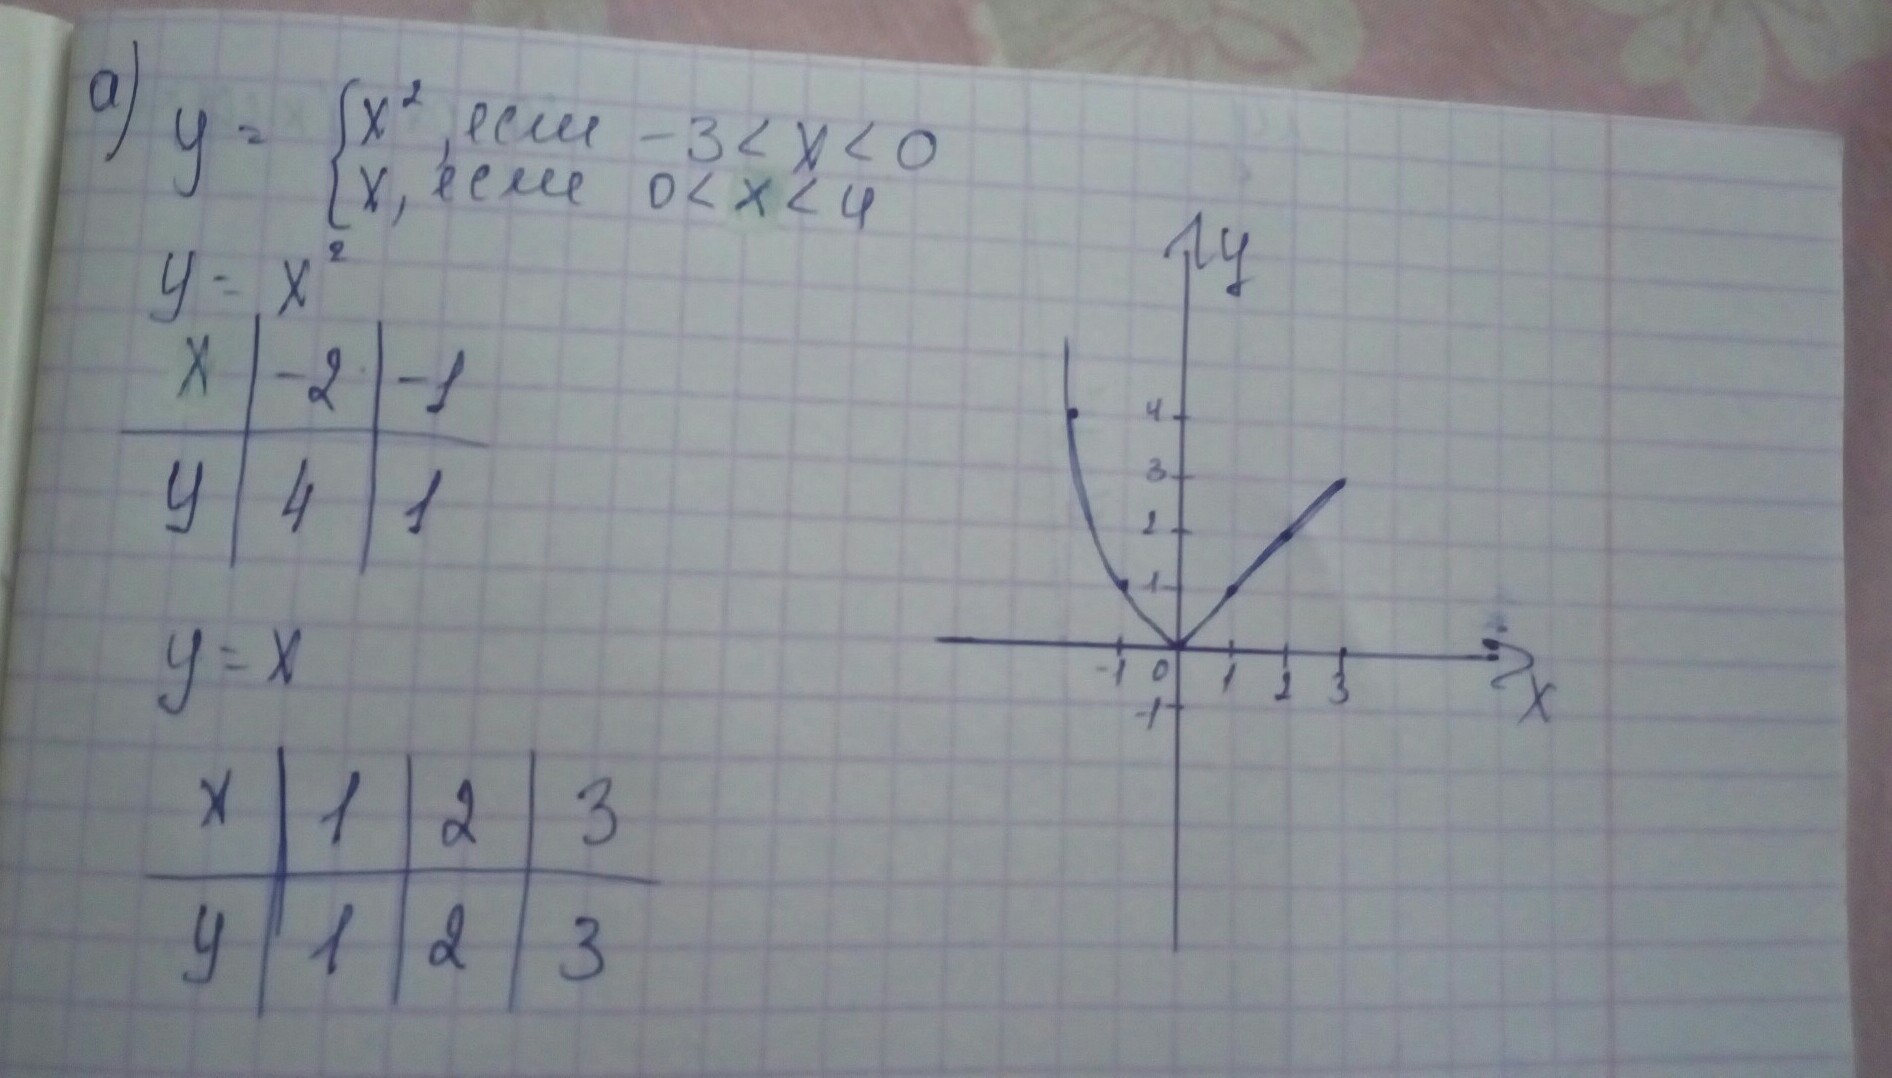 а) y = { x², если -3 < x < 0
x, если 0 < x < 4
y = x²
x | -2 | -1
y | 4 | 1
y = x
x | 1 | 2 | 3
y | 1 | 2 | 3
y
4
3
2
1
-1 0 1 2 3
x
-1